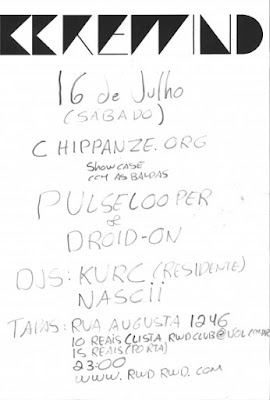 KKREWIND
16 de Julho
(SÁBADO)
CHIPPANZE.ORG
SHOWCASE
COM AS BANDAS
PULSELOOPER
&
DROID-ON
DJS: KURC (RESIDENTE)
NASCII
TAPAS: RUA AUGUSTA 1246
10 REAIS (LISTA, RWDCLUB@UOL.COM.BR
15 REAIS (PORTA)
23:00
WWW.RWDRWD.COM